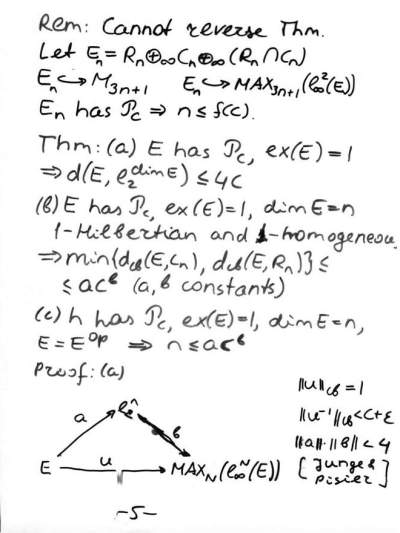 Rem: Cannot reverse Thm.
Let Eₙ = Rₙ⊕∞Cₙ⊕∞(Rₙ∩Cₙ)
Eₙ ↪ M₃ₙ₊₁    Eₙ ↪ MAX₃ₙ₊₁(ℓ∞²(E))
Eₙ has P_c ⇒ n ≤ f(c).
Thm: (a) E has P_c, ex(E)=1
⇒ d(E, ℓ₂^dimE) ≤ 4C
(b) E has P_c, ex(E)=1, dim E=n
1-Hilbertian and 1-homogeneous
⇒ min{d_cb(E,Cₙ), d_cb(E,Rₙ)} ≤
≤ ac^b (a, b constants)
(c) h has P_c, ex(E)=1, dim E=n,
E = E^op ⇒ n ≤ ac^b
Proof: (a)
‖u‖_cb = 1
‖u⁻¹‖_cb < C+ε
‖a‖·‖b‖ < 4
[Junge &
Pisier]
a ℓ₂^n b
E u MAX_N(ℓ∞^N(E))
-5-